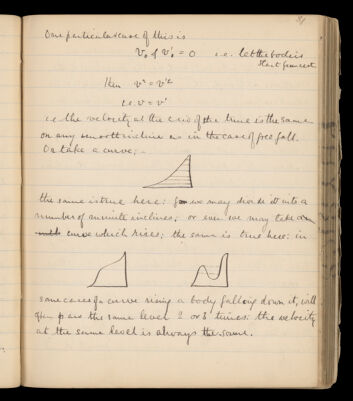 One particular case of this is
v₀ & v'₀ = 0 i.e. let the bodies
start from rest
then v² = v'²
i.e. v = v'
i.e. the velocity at the end of the time is the same
on any smooth incline as in the case of free fall.
Or take a curve; -
the same is true here: for we may divide it into a
number of minute inclines; or even we may take
curve which rises; the same is true here: in
some cases of a curve rising a body falling down it, will
often pass the same level 2 or 3 times: the velocity
at the same level is always the same.